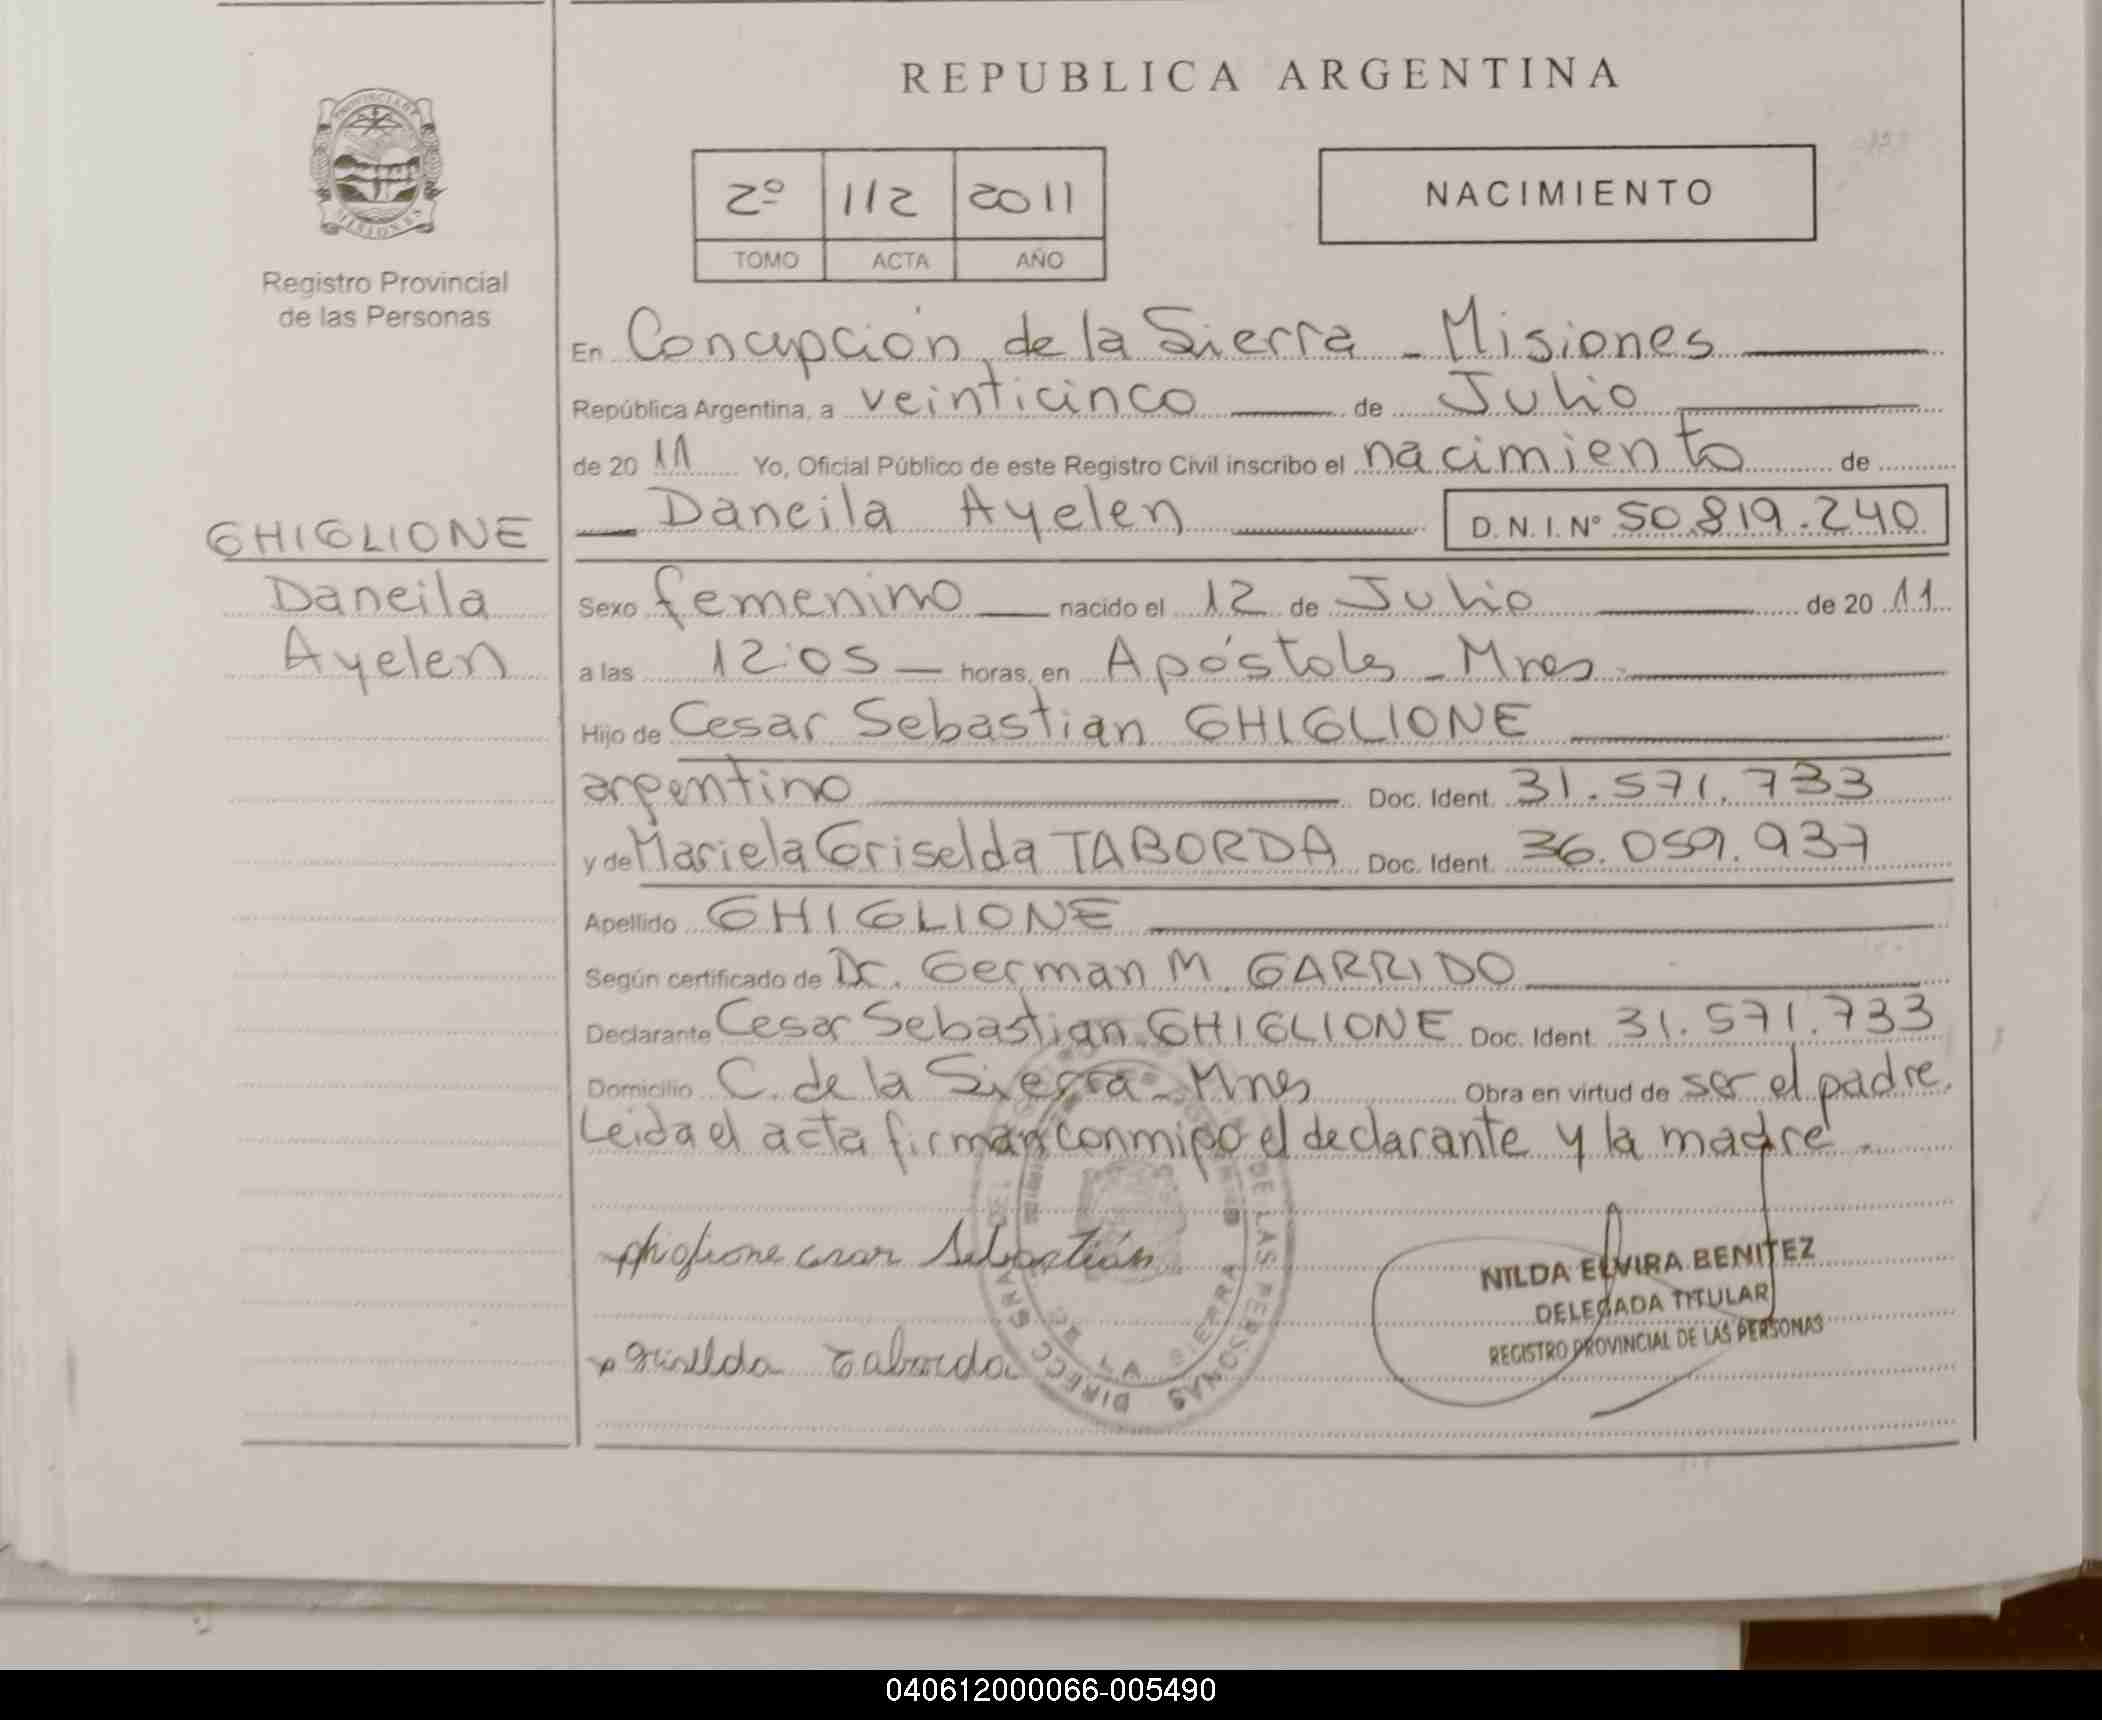 REPUBLICA ARGENTINA
PROVINCIA DE
MISIONES
Registro Provincial
de las Personas
2º 112 2011
TOMO ACTA AÑO
NACIMIENTO
En Concepción de la Sierra - Misiones
República Argentina, a veinticinco de Julio
de 20 11 Yo, Oficial Público de este Registro Civil inscribo el nacimiento de
Daneila Ayelen D.N.I. Nº 50.819.240
GHIGLIONE
Daneila
Ayelen
Sexo femenino nacido el 12 de Julio de 20 11
a las 12:05 horas, en Apóstoles - Mnes.
Hijo de Cesar Sebastian GHIGLIONE
argentino Doc. Ident. 31.571.733
y de Mariela Griselda TABORDA Doc. Ident. 36.059.937
Apellido GHIGLIONE
Según certificado de Dr. German M. GARRIDO
Declarante Cesar Sebastian GHIGLIONE Doc. Ident. 31.571.733
Domicilio C. de la Sierra - Mnes Obra en virtud de ser el padre.
Leida el acta firman conmigo el declarante y la madre.
Ghiglione Cesar Sebastián
Griselda Taborda
DE LAS PERSONAS
DE LA SIERRA
NILDA ELVIRA BENITEZ
DELEGADA TITULAR
REGISTRO PROVINCIAL DE LAS PERSONAS
040612000066-005490